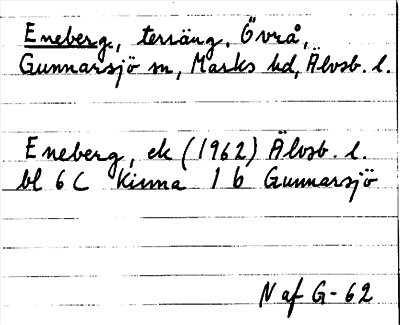 Eneberg, terräng. Övrå,
Gunnarsjö sn, Marks hd, Älvsb. l.
Eneberg, ek (1962) Älvsb. l.
bl 6 C Kinna 1 b Gunnarsjö
N af G-62